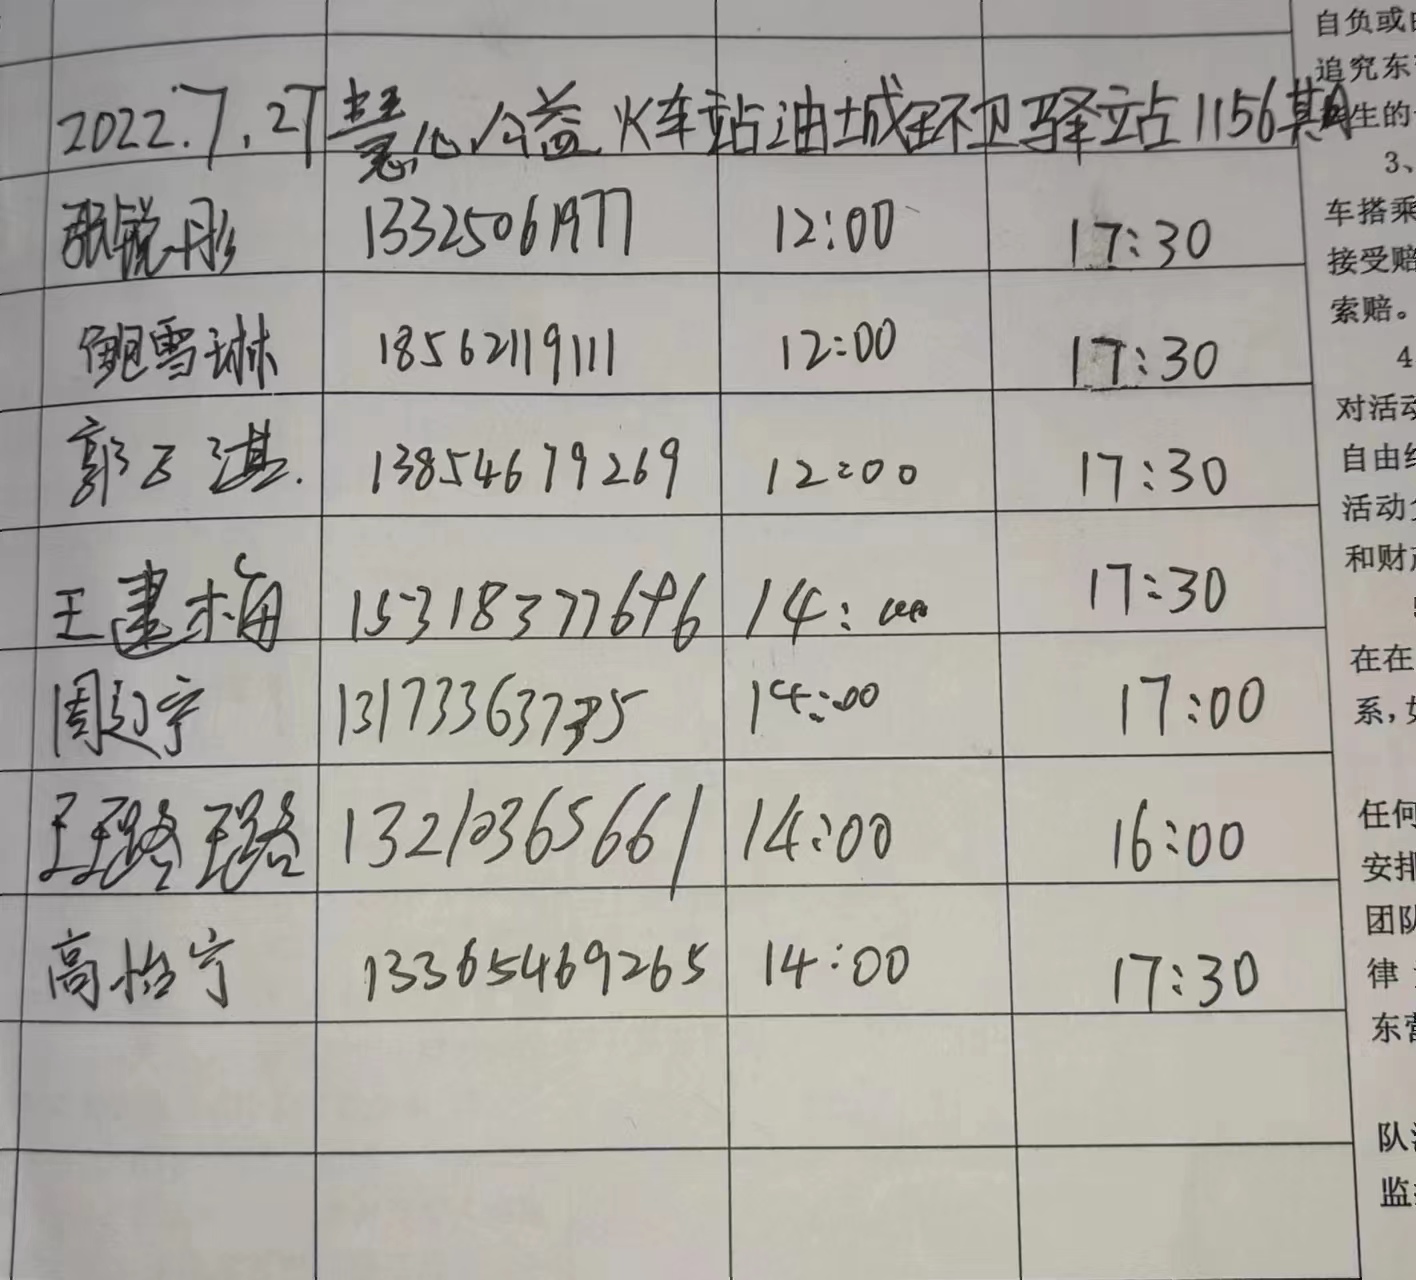 2022.7.27慧心公益火车站油城环卫驿站1156期
张锐彤 13325061977 12:00 17:30
鲍雪琳 18562119111 12:00 17:30
郭云淇. 13854679269 12:00 17:30
王建梅 15318377696 14:00 17:30
周边宁 13173363735 14:00 17:00
王璐璐 13210365661 14:00 16:00
高怡宁 13365469265 14:00 17:30
自负或
追究东
生的
3、
车搭乘
接受赔
索赔。
4
对活动
自由
活动
和财产
在在
系,如
任何
安排
团队
律
东营
队
监